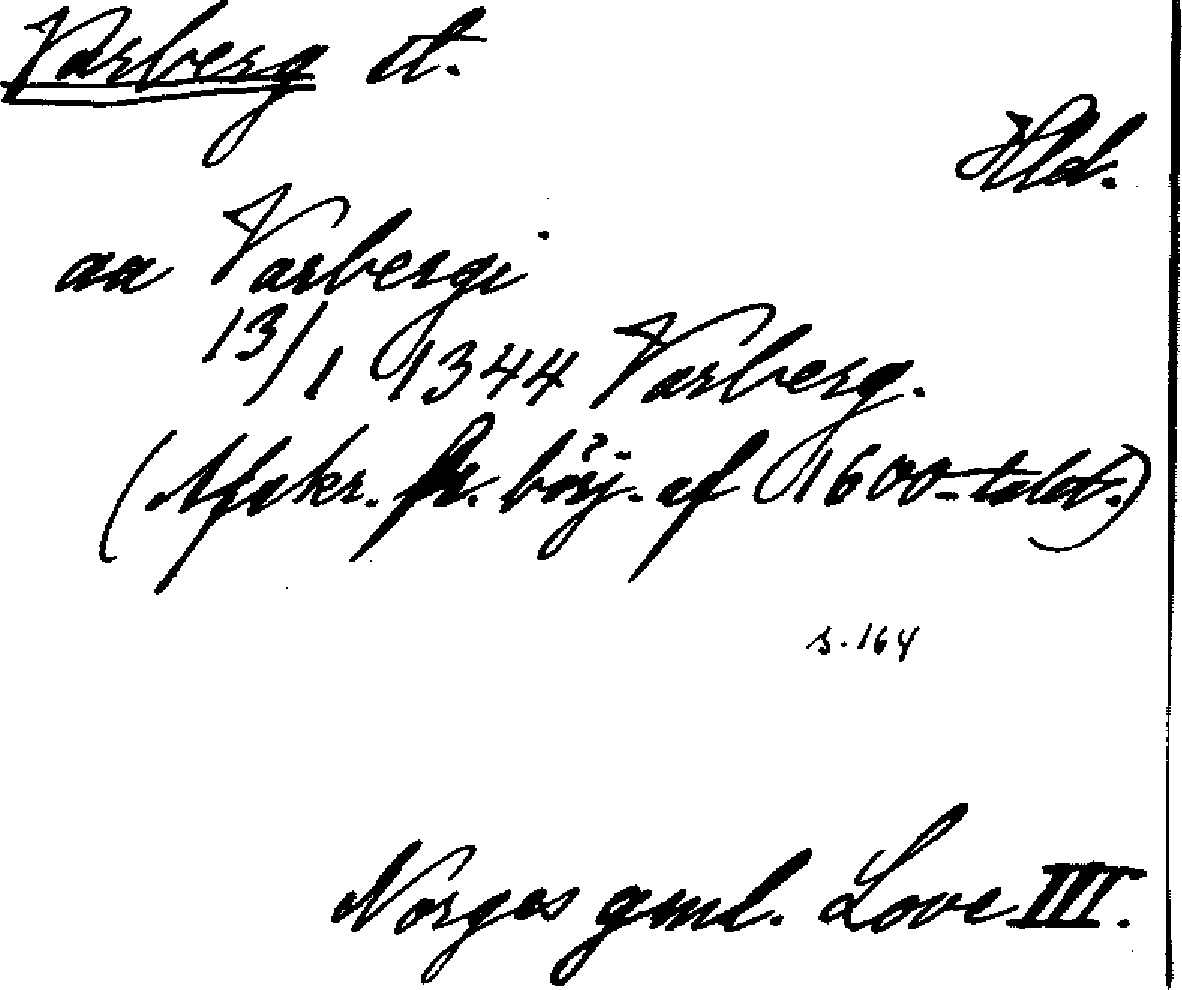 Varberg st.
Hld.
aa Varbergi
13/1 1344 Varberg.
(Afskr. fr. börj. af 1600-talet.)
s. 164
Norges gml. Love III.